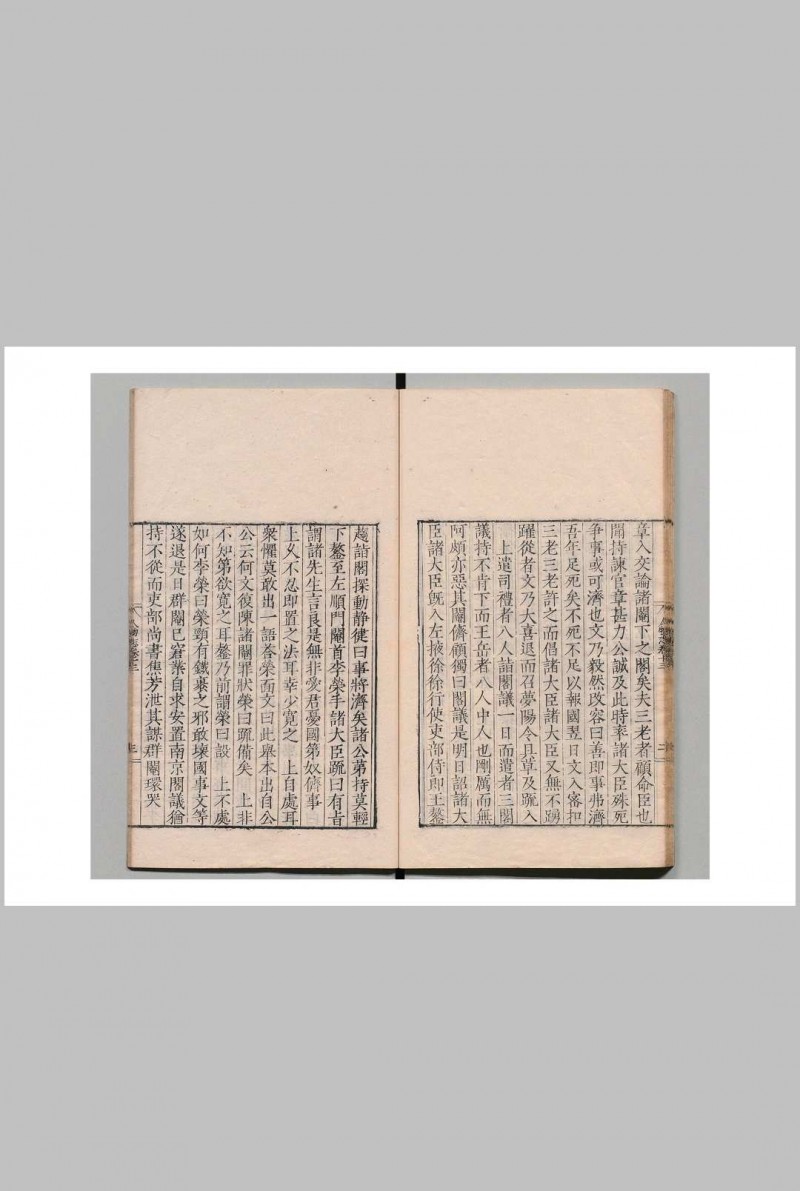 章入交論諸閹下之閣矣夫三老者顧命臣也
聞持諫官章甚力公誠及此時率諸大臣殊死
爭事或可濟也文乃毅然改容曰善即事弗濟
吾年足死矣不死不足以報國翌日文入密扣
三老三老許之而倡諸大臣諸大臣又無不踴
躍從者文乃大喜退而召夢陽令具草及疏入
上遣司禮者八人詣閣議一日而遣者三閣
議持不肯下而王岳者八人中人也剛厲而無
阿頗亦惡其閹儕顧獨曰閣議是明日詔諸大
臣諸大臣旣入左掖徐徐行使吏部侍郎王鏊
趍詣閣探動靜徤曰事將濟矣諸公第持莫輕
下鏊至左順門閹首李榮手諸大臣疏曰有㫖
謂諸先生言良是無非愛君憂國第奴儕事
上乆不忍即置之法耳幸少寬之 上自處耳
衆懼莫敢出一語荅榮面文曰此舉本出自公
公云何文復陳諸閹罪狀榮曰疏備矣 上非
不知第欲寬之耳鏊乃前謂榮曰設 上不處
如何李榮曰榮頸有鐵裹之邪敢壞國事文等
遂退是日群閹已窘業自求安置南京閣議猶
持不從而吏部尚書焦芳泄其謀群閹環哭